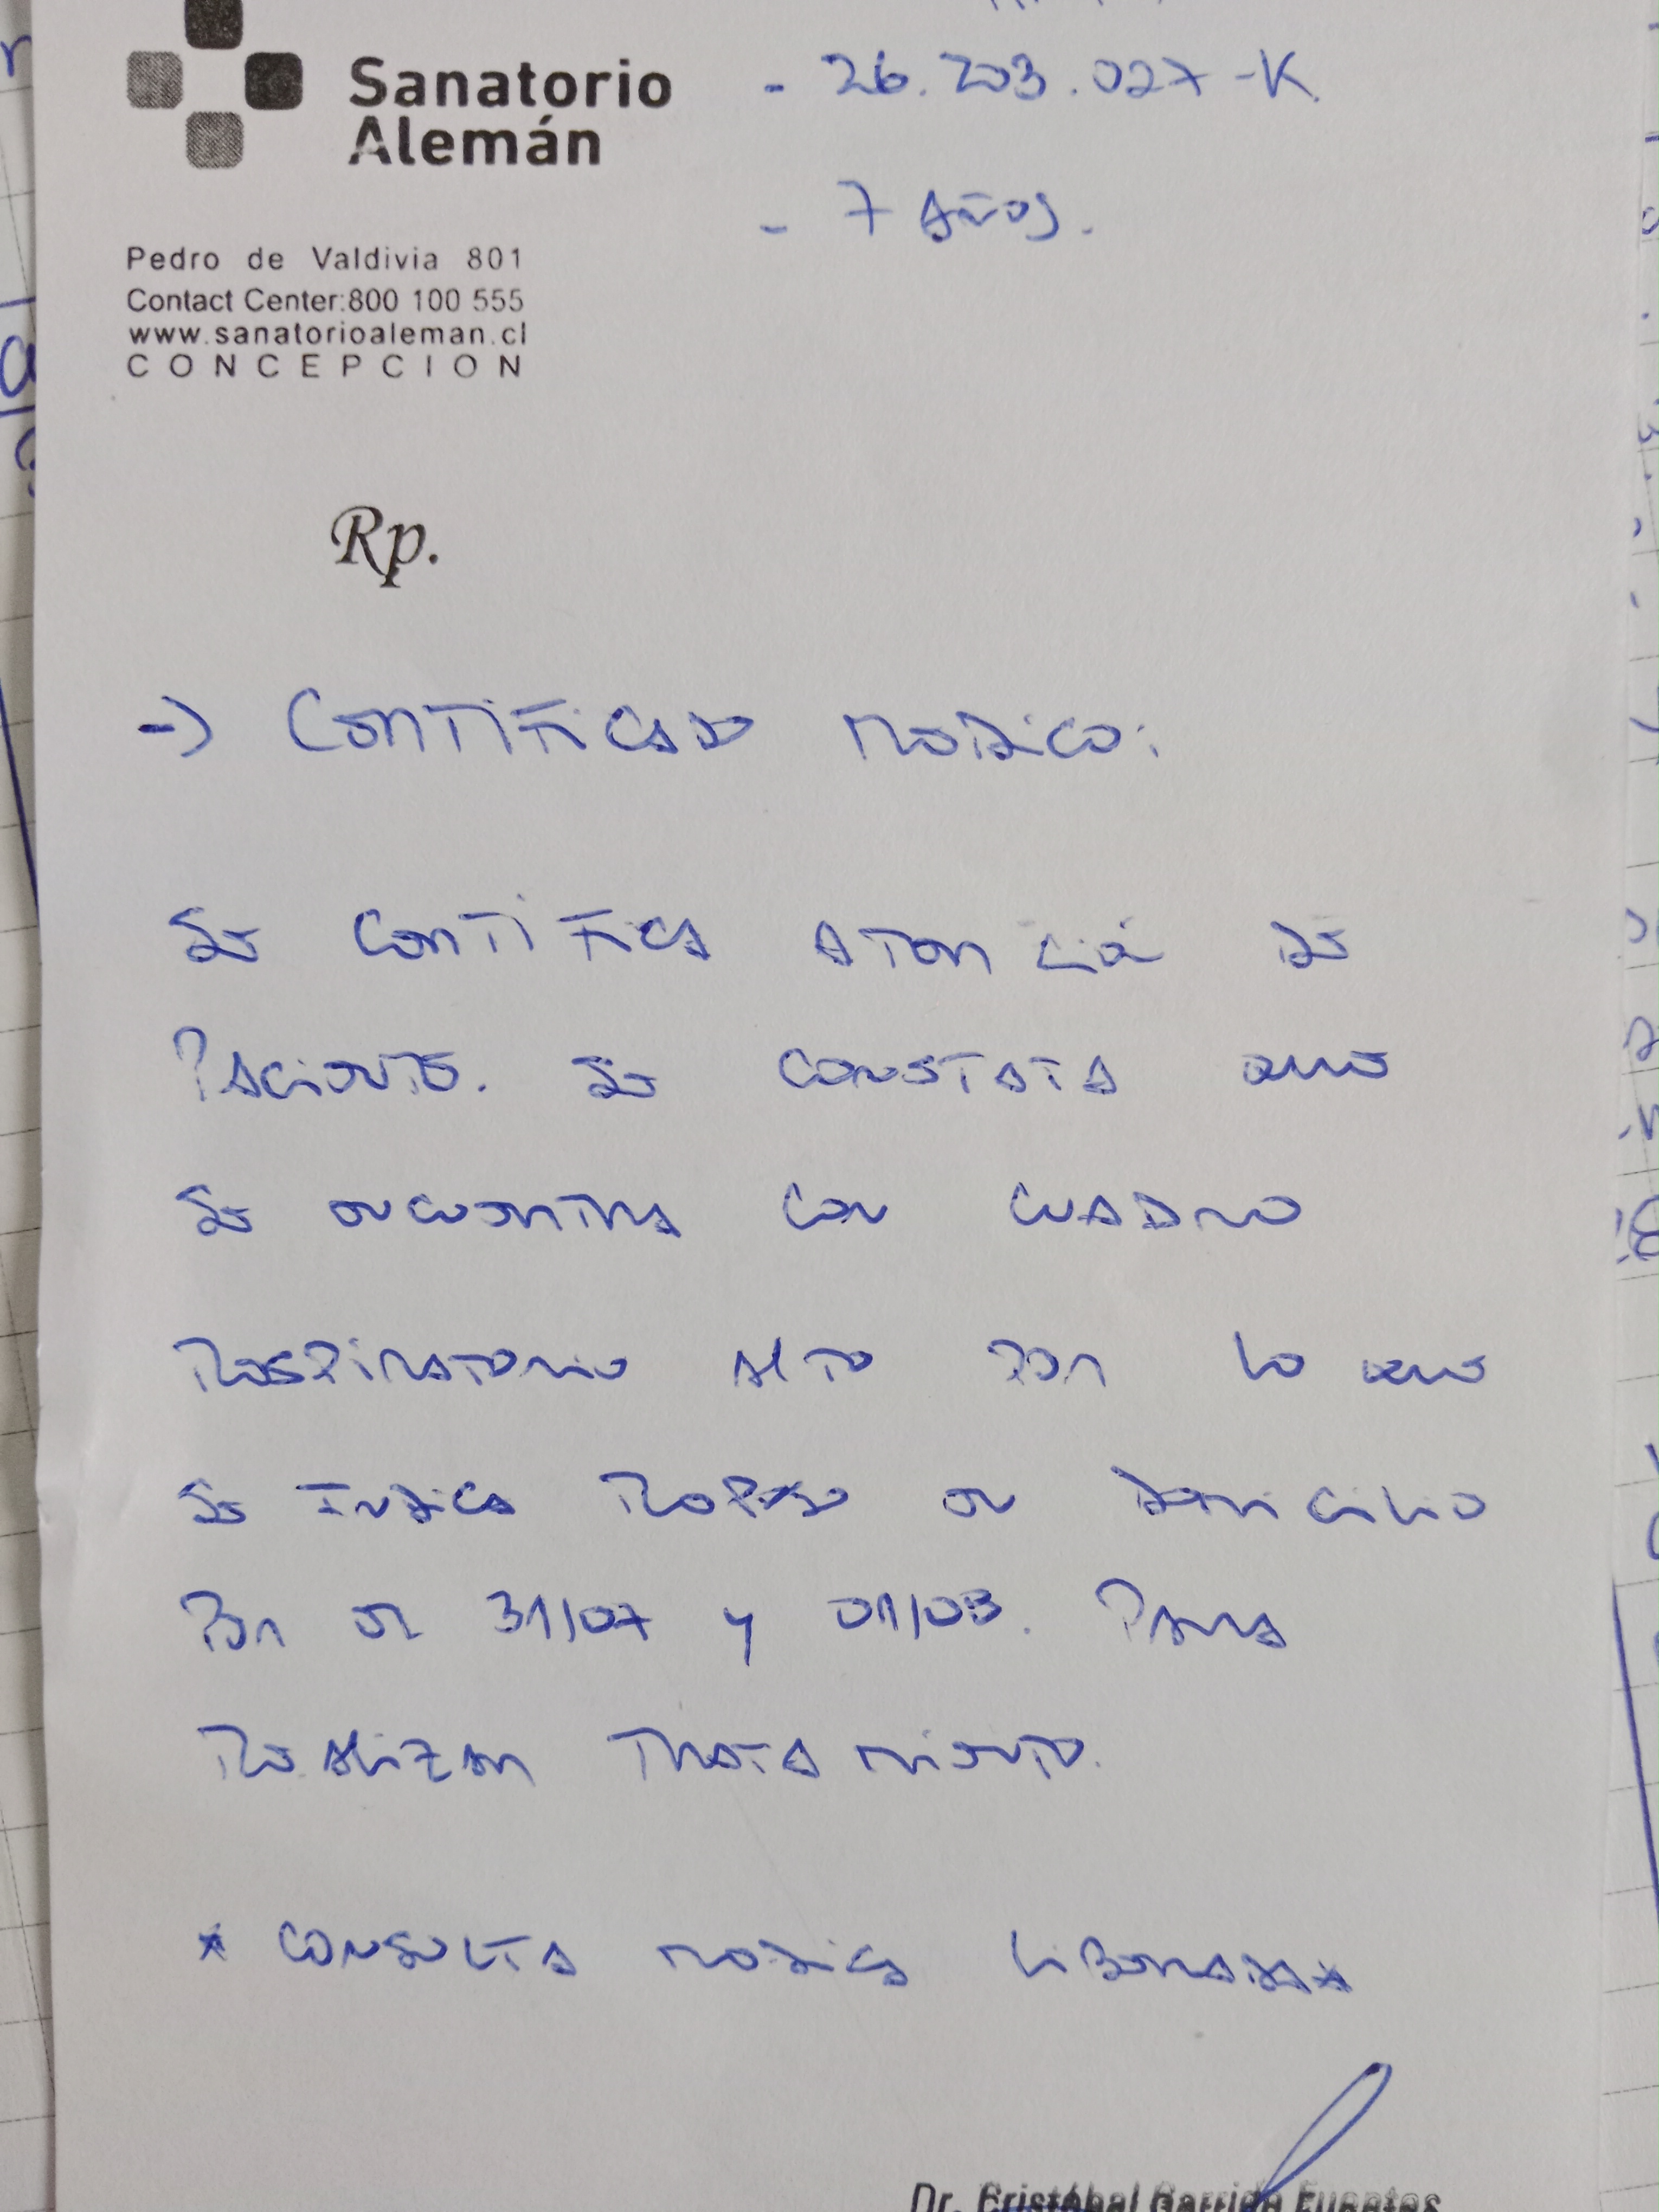 Sanatorio
Alemán
- 26.203.027-K.
- 7 Años.
Pedro de Valdivia 801
Contact Center:800 100 555
www.sanatorioaleman.cl
CONCEPCION
Rp.
-) Certificado medico:
Se certifica atención de
Paciente. Se constata que
Se encuentra con cuadro
Respiratorio alto por lo que
Se indica reposo en domicilio
Por el 31/07 y 01/08. Para
Realizar tratamiento.
* Consulta medica liberada*
Dr. Cristóbal Garrido Fuentes